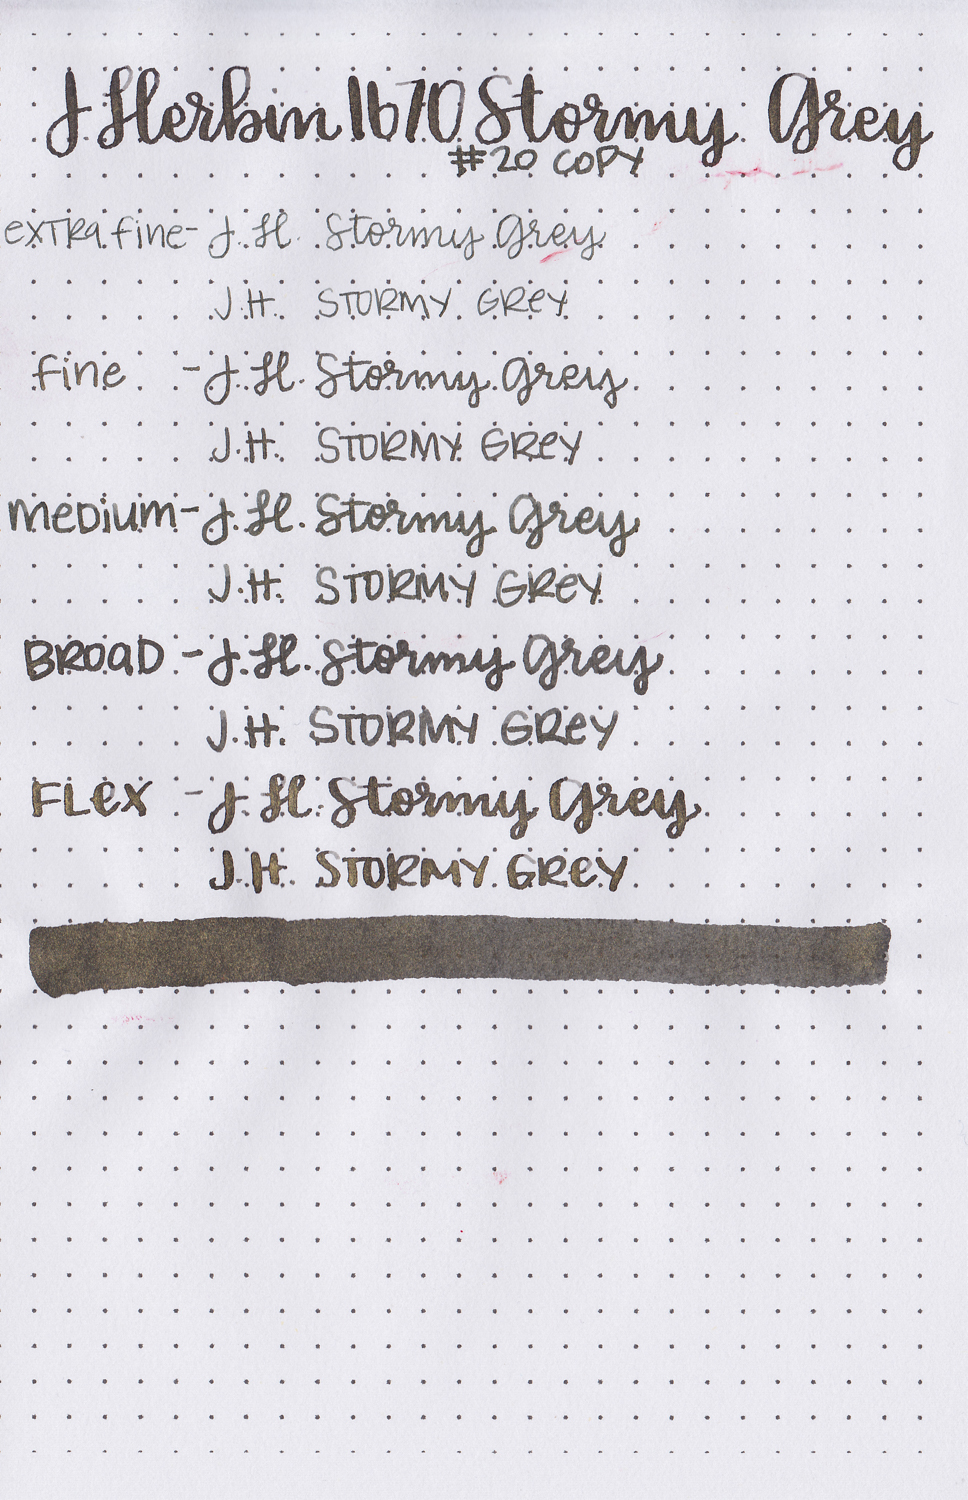 J Herbin 1670 Stormy Grey
#20 COPY
extra fine - J.H. Stormy Grey
J.H. STORMY GREY
fine - J.H. Stormy Grey
J.H. STORMY GREY
MEDIUM - J.H. Stormy Grey
J.H. STORMY GREY
BROAD - J.H. Stormy Grey
J.H. STORMY GREY
FLEX - J.H. Stormy Grey
J.H. STORMY GREY